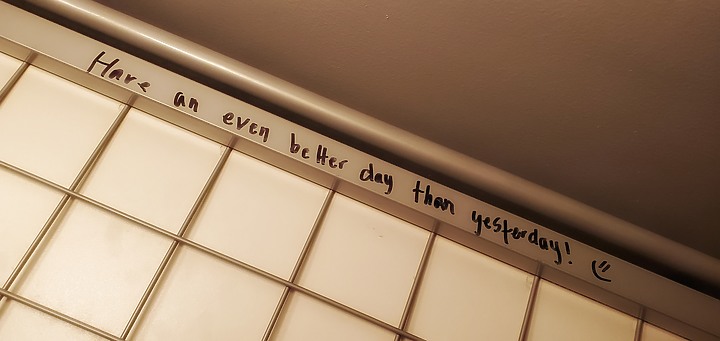 Have an even better day than yesterday! :)